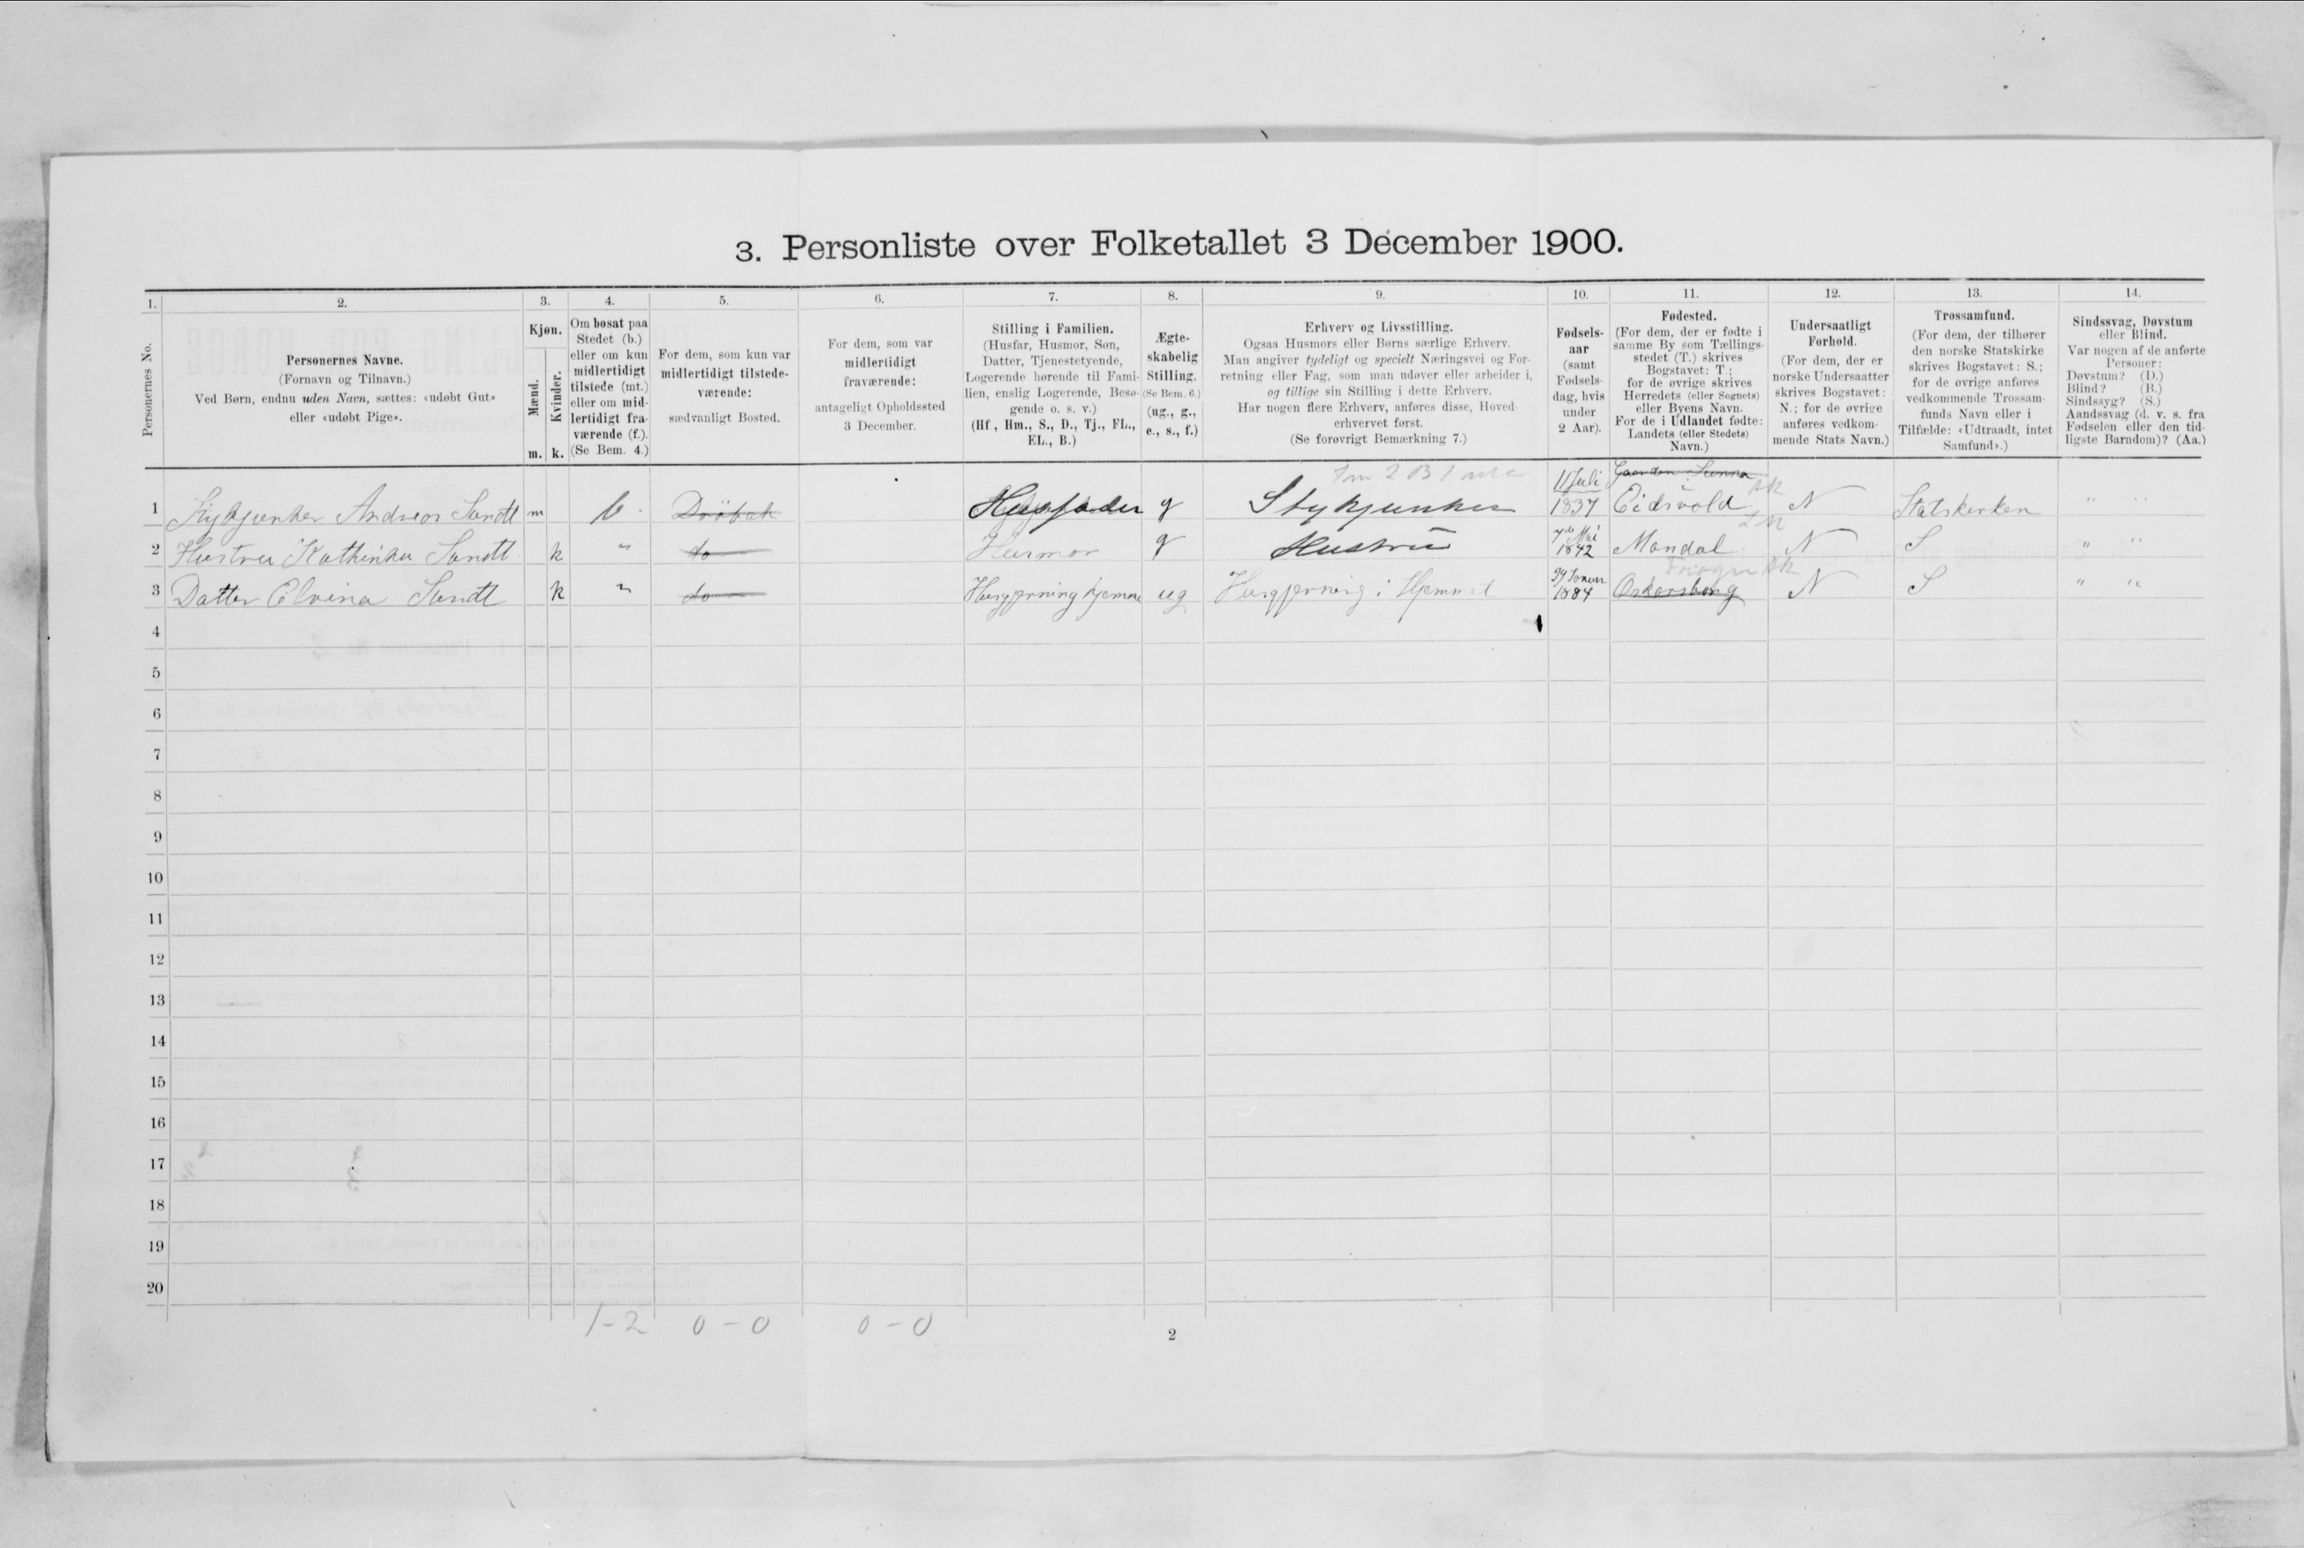 3. Personliste over Folketallet 3 December 1900.
1. 2. 3. 4. 5. 6. 7. 8. 9. 10. 11. 12. 13. 14.
Personernes No.
Personernes Navne.
(Fornavn og Tilnavn.)
Ved Børn, endnu uden Navn, sættes: «udøbt Gut»
eller «udøbt Pige».
Kjøn.
Mænd.
Kvinder.
m. k.
Om bosat paa
Stedet (b.)
eller om kun
midlertidigt
tilstede (mt.)
eller om mid-
lertidigt fra-
værende (f.).
(Se Bem. 4.)
For dem, som kun var
midlertidigt tilstede-
værende:
sædvanligt Bosted.
For dem, som var
midlertidigt
fraværende:
antageligt Opholdssted
3 December.
Stilling i Familien.
(Husfar, Husmor, Søn,
Datter, Tjenestetyende,
Logerende hørende til Fami-
lien, enslig Logerende, Besø-
gende o. s. v.)
(Hf, Hm., S., D., Tj., FL.,
EL., B.)
Ægte-
skabelig
Stilling.
(Se Bem. 6.)
(ug., g.,
e., s., f.)
Erhverv og Livsstilling.
Ogsaa Husmors eller Børns særlige Erhverv.
Man angiver tydeligt og specielt Næringsvei og For-
retning eller Fag, som man udøver eller arbeider i,
og tillige sin Stilling i dette Erhverv.
Har nogen flere Erhverv, anføres disse, Hoved-
erhvervet først.
(Se forøvrigt Bemærkning 7.)
Fødsels-
aar
(samt
Fødsels-
dag, hvis
under
2 Aar).
Fødested.
(For dem, der er fødte i
samme By som Tællings-
stedet (T.) skrives
Bogstavet: T.;
for de øvrige skrives
Herredets (eller Sognets)
eller Byens Navn.
For de i Udlandet fødte:
Landets (eller Stedets)
Navn.)
Undersaatligt
Forhold.
(For dem, der er
norske Undersaatter
skrives Bogstavet:
N.; for de øvrige
anføres vedkom-
mende Stats Navn.)
Trossamfund.
(For dem, der tilhører
den norske Statskirke
skrives Bogstavet: S.;
for de øvrige anføres
vedkommende Trossam-
funds Navn eller i
Tilfælde: «Udtraadt, intet
Samfund».)
Sindssvag, Døvstum
eller Blind.
Var nogen af de anførte
Personer:
Døvstum? (D.)
Blind? (B.)
Sindssyg? (S.)
Aandssvag (d. v. s. fra
Fødselen eller den tid-
ligste Barndom)? (Aa.)
11 Juli Gaarden Sunna
1 Stykjunker Andreas Sundt m b. Dröbak Husfader g Stykjunker 1837 Eidsvold N Statskirken " "
7de Mai
2 Hustru Kathinka Sundt. k " do Husmor g Hustru 1842 Mandal N S " "
Frogn Ak
3 Datter Elvina Sundt k " do Husgjerning hjemme ug Husgjerning i Hjemmet 1884 Oskarsborg N S " "
4
5
6
7
8
9
10
11
12
13
14
15
16
17
18
19
20
1-2 0-0 0-0
2